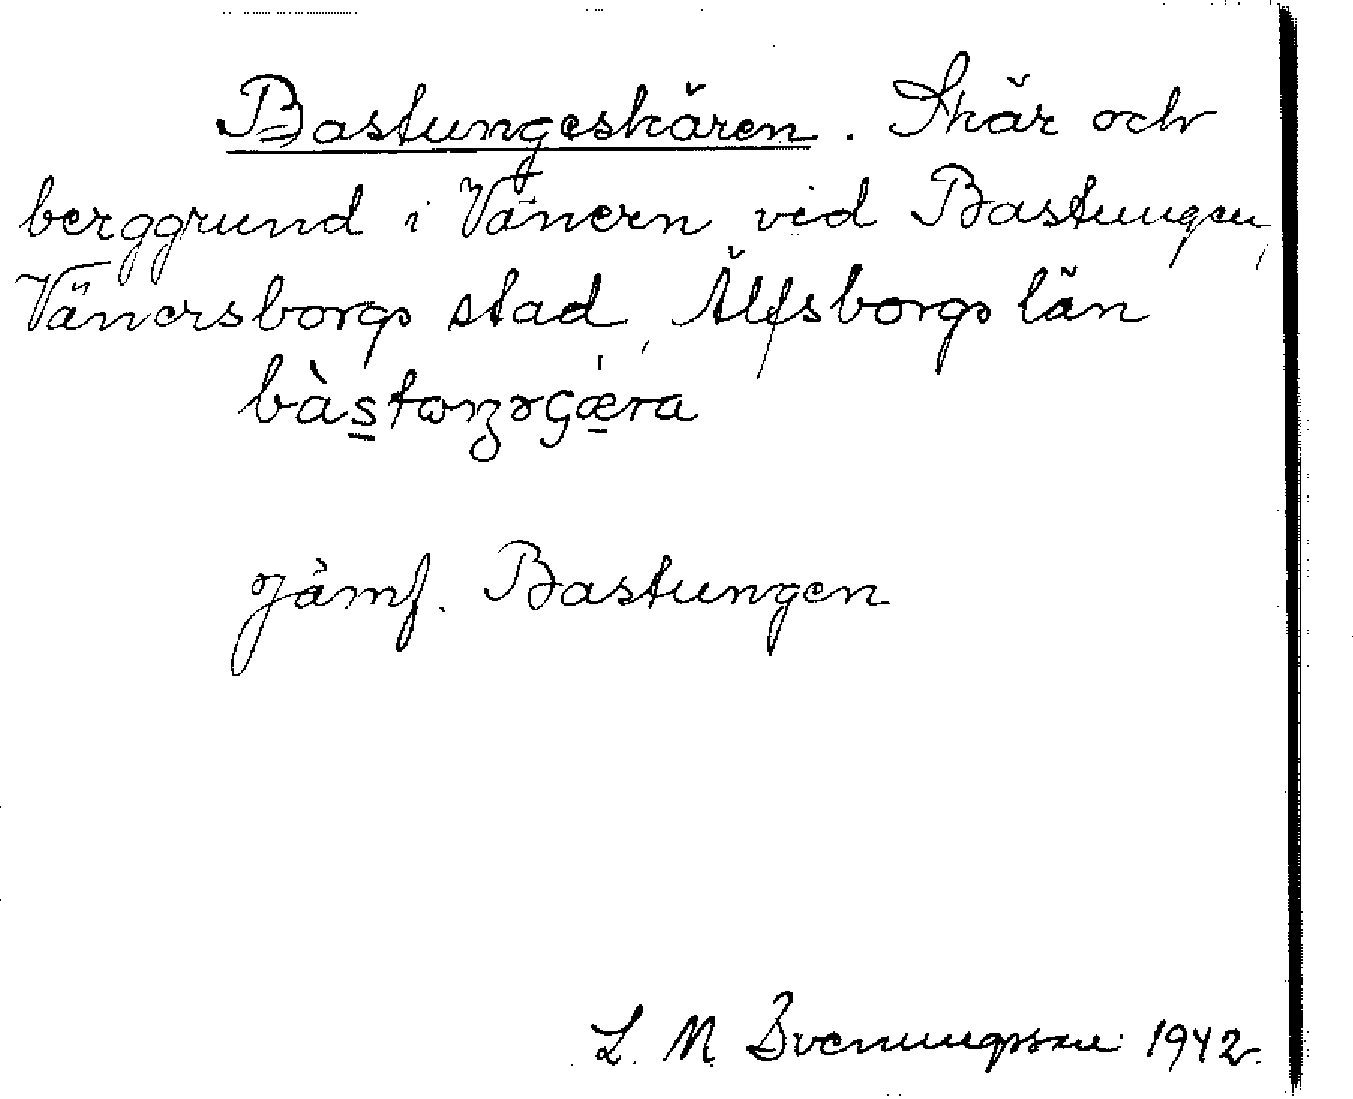 Bastungeskären. Skär och
berggrund i Vänern vid Bastungen,
Vänersborgs stad, Älfsborgs län
jämf. Bastungen
L. M. Svenungsson 1942.